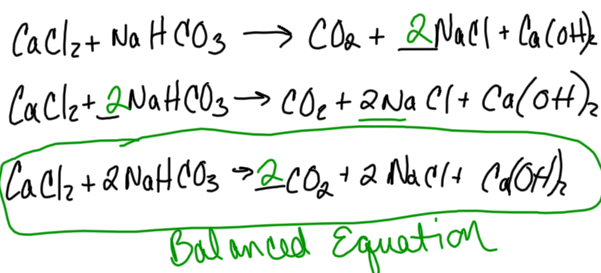 CaCl₂ + NaHCO₃ → CO₂ + 2NaCl + Ca(OH)₂
CaCl₂ + 2NaHCO₃ → CO₂ + 2NaCl + Ca(OH)₂
CaCl₂ + 2NaHCO₃ → 2CO₂ + 2NaCl + Ca(OH)₂
Balanced Equation